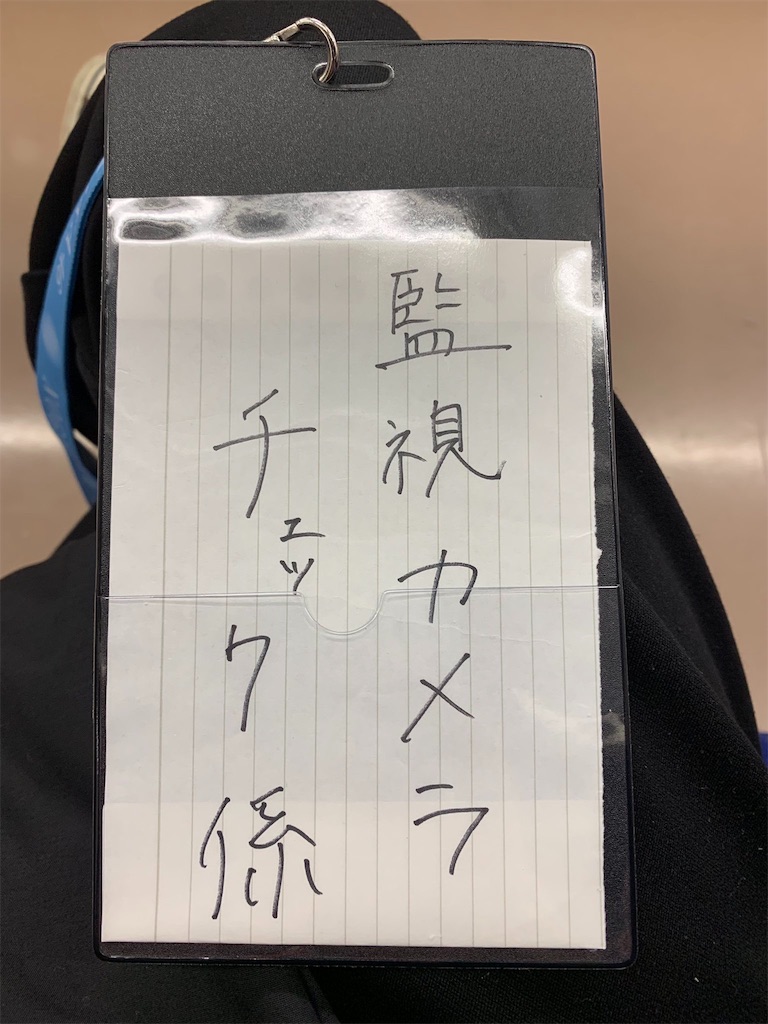 監視カメラ
チェック係